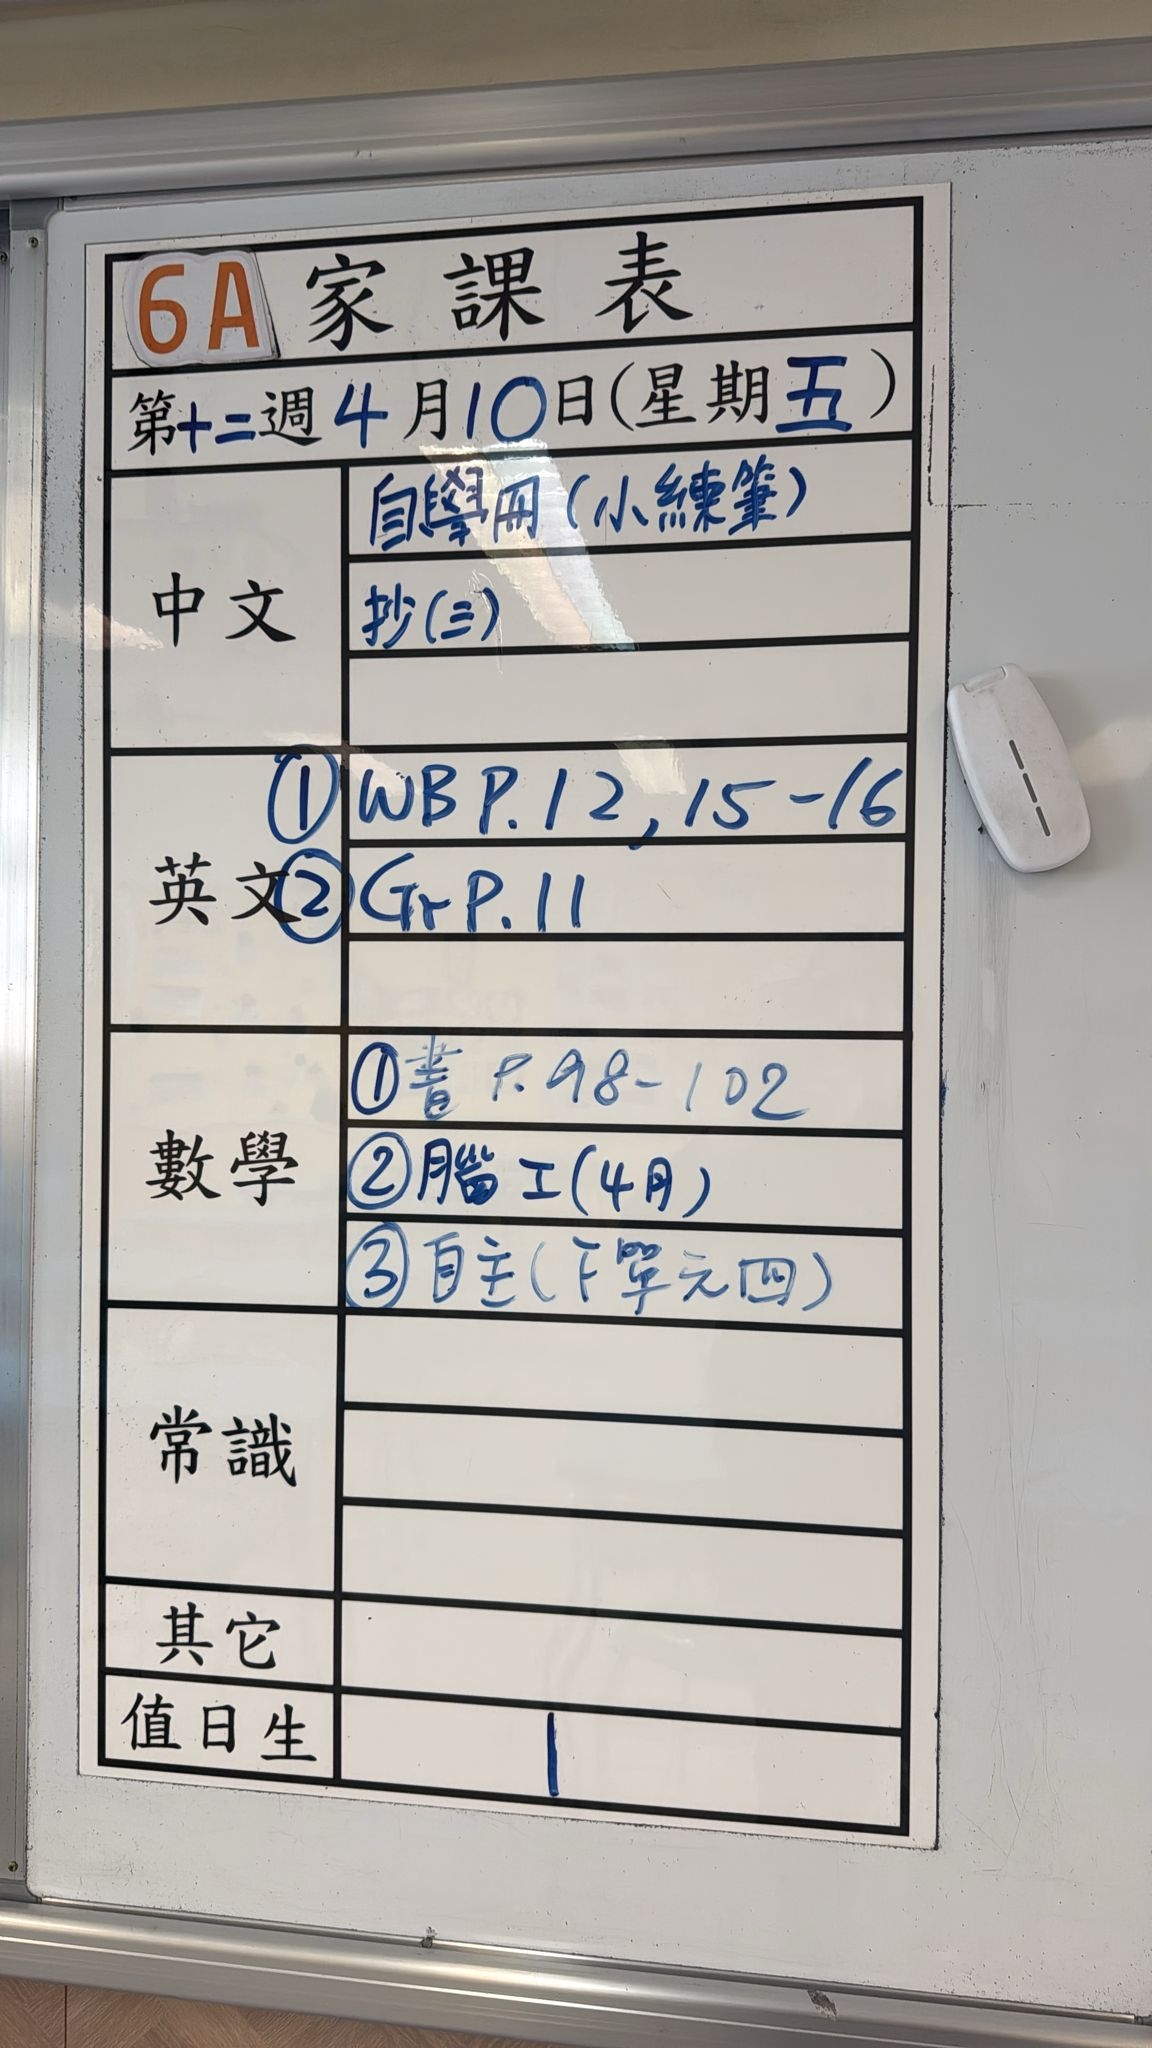 6A 家課表
第十二週4月10日(星期五)
中文
自學冊(小練筆)
抄(三)
英文
① WB P.12, 15-16
② Gr P.11
數學
①書 P.98-102
②腦工(4月)
③自主(下單元四)
常識
其它
值日生
1